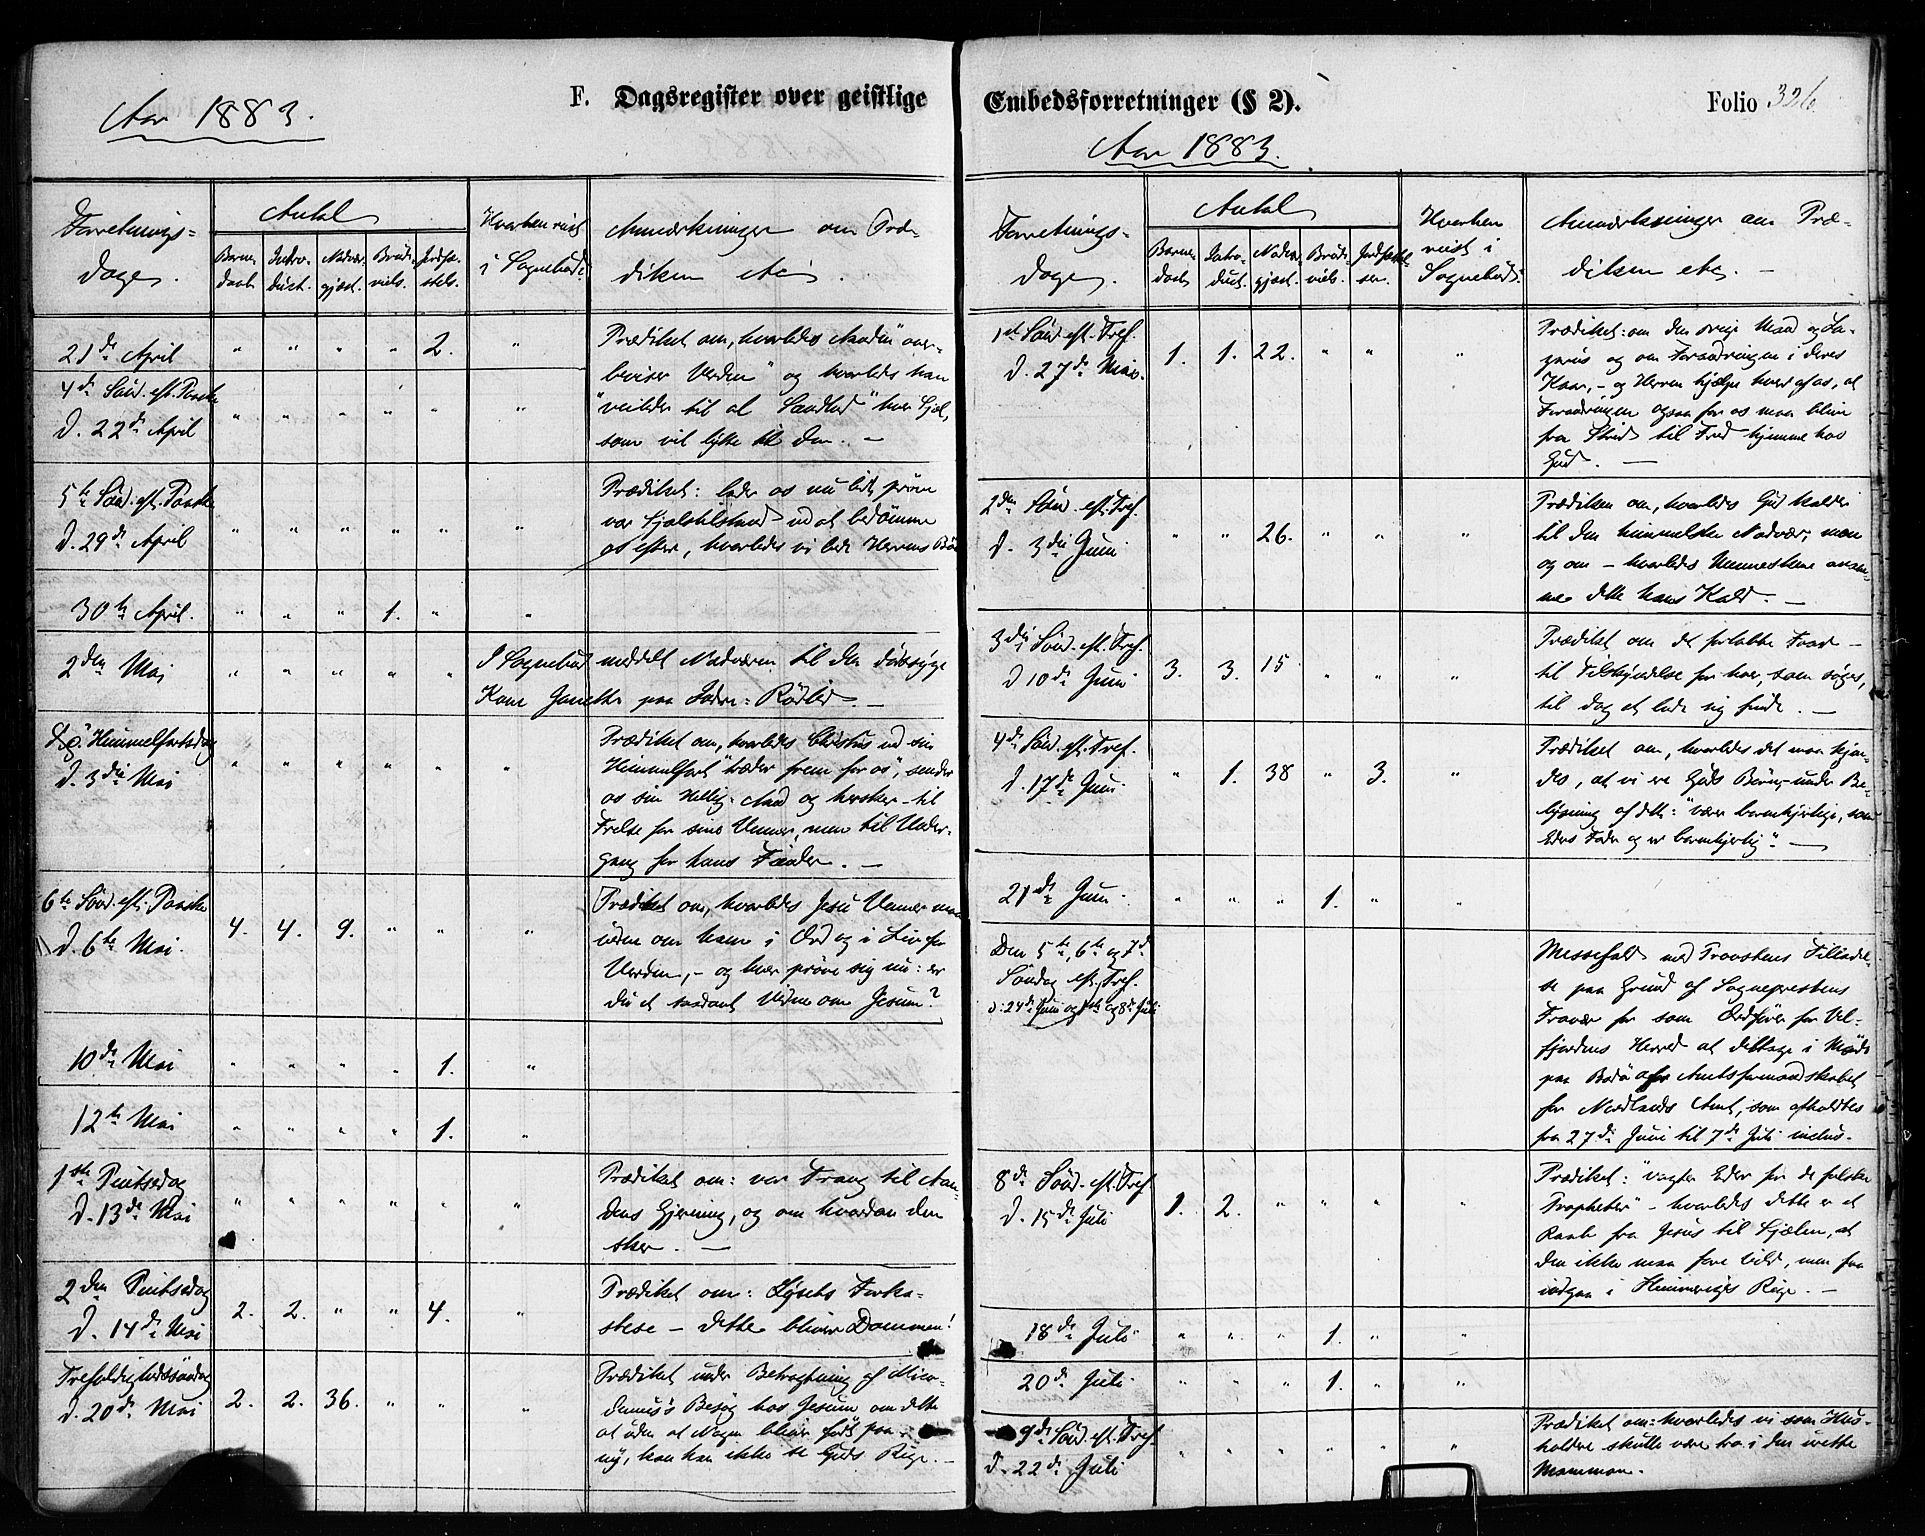 F. Dagsregister over geistlige
Aar 1883.
Forretnings-
dage.
Antal
Barne-
daab
Intro-
duct.
Nadver-
gjæst.
Brude-
viels.
Jordfæ-
stels.
Hvorhen reist
i Sognebud.
Anmærkninger om Præ-
diken etc.
21de April " " " " 2. "
4de Sönd. eft. Paaske
D. 22de April " " " " " "
Prædiket om, hvorledes Aanden "over-
beviser Verden" og hvorledes han
"veileder til al Sandhed" hver Sjæl,
som vil lytte til den. —
5te Sönd. eft. Paaske
D. 29de April " " " " " "
Prædiket: lader os nu lidt prøve
vor Sjælstilstand ved at bedömme
os efter, hvorledes vi bede Herrens Bön
30te April. " " " 1. " "
2den Mai " " " " "
I Sognebud meddelt Nadveren til den dødssyge
Kone Janethe paa Indre-Rödlid. —
Chr. Himmelfartsdag
D. 3die Mai " " " " " "
Prædiket om, hvorledes Christus ved sin
Himmelfart "træder frem for os", sender
os sin Hellig-Aand og hersker til
Frelse for sine Venner, men til Under-
gang for hans Fiender. —
6te Sönd. eft. Paaske
D. 6te Mai. 4. 4. 9. " " "
Prædiket om, hvorledes Jesu Venner maa
vidne om ham i Ord og i Liv for
Verden, - og hver prøve sig nu: er
du et saadant Vidne om Jesum?
10de Mai " " " " 1. "
12te Mai " " " " 1. "
1ste Pintsedag
D. 13de Mai " " " " " "
Prædiket om: vor Trang til Aan-
dens Gjerning, og om hvordan den
sker. —
2den Pintsedag
D. 14de Mai 2. 2. " " 4. "
Prædiket om: Lysets Forka-
stelse — dette bliver Dommen!
Trefoldighedssöndag
D. 20de Mai 2. 2. 36. " " "
Prædiket under Betragtning af Nico-
demus's Besög hos Jesum om dette
at uden at Nogen bliver født paa
ny, kan han ikke se Guds Rige. —
Embedsforretninger (§ 2).
Folio 326
Aar 1883.
Forretnings-
dage.
Antal
Barne-
daab
Intro-
duct.
Nadver-
gjæst.
Brude-
viels.
Jordfæstel-
ser.
Hvorhen
reist i
Sognebud.
Anmærkninger om Præ-
diken etc. —
1ste Sönd. eft. Tref.
D. 27de Mai. 1. 1. 22. " " "
Prædiket: om den rige Mand og La-
zarus og om Forandringen i deres
Kaar, - og Herren hjælpe hver af os, at
Forandringen ogsaa for os maa blive
fra Strid til Fred hjemme hos
Gud. —
2den Sönd. eft. Tref.
D. 3die Juni " " 26. " " "
Prædiken om, hvorledes Gud kalder
til den himmelske Nadver, men
og om — hvorledes Menneskene
dette hans Kald. —
3die Sönd. eft. Tref.
D 10de Juni 3. 3. 15 " " "
Prædiket om det fortabte Faar —
til Tilskyndelse for hver, som søges,
til idag at lade sig finde. —
4de Sönd. eft. Tref.
D. 17de Juni " 1. 38 " 3. "
Prædiket om, hvorledes det maa kjen-
des, at vi ere Guds Børn under Be-
lysning af dette: "værer barmhjertige, som
Eders Fader og er barmhjertig". —
21de Juni " " " 1. " "
Den 5te, 6te og 7de
Söndag eft. Tref.
D: 24de Juni og 1ste og 8de Juli
Messefald med Provstens Tilladel-
se paa Grund af Sognepræstens
Fravær for som Ordförer for Vel-
fjordens Herred at deltage i Möde
paa Bodö af Amtsformandskabet
for Nordlands Amt, som afholdtes
fra 27de Juni til 7de Juli inclus.
8de Sönd. eft. Tref
D. 15de Juli 1. 2. " " " "
Prædiket: "vogter Eder for de falske
Propheter" — hvorledes dette er et
Raab fra Jesus til Sjælen, at
den ikke maa fare vild, men faa
indgaa i Himmeriges Rige. —
18de Juli " " " 1. " "
20de Juli " " " 1. " "
9de Sönd. eft. Tref.
D. 22de Juli " " " " " "
Prædiket om: hvorledes vi som Hus-
holdere skulle være tro i den urette
Mammon.